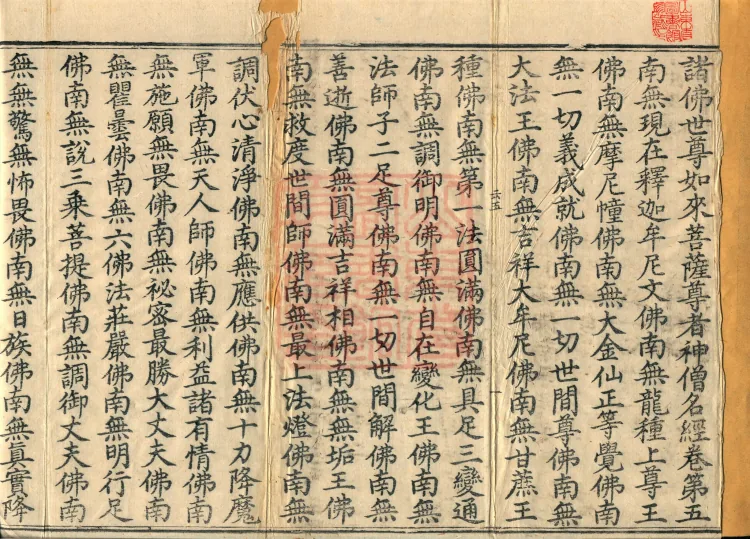 諸佛世尊如來菩薩尊者神僧名經卷第五
南無現在釋迦牟尼文佛南無龍種上尊王
佛南無摩尼幢佛南無大金仙正等覺佛南
無一切義成就佛南無一切世間尊佛南無
大法王佛南無吉祥大牟尼佛南無甘蔗王
種佛南無第一法圓滿佛南無具足三變通
佛南無調御明佛南無自在變化王佛南無
法師子二足尊佛南無一切世間解佛南無
善逝佛南無圓滿吉祥相佛南無無垢王佛
南無救度世間師佛南無最上法燈佛南無
調伏心清淨佛南無應供佛南無十力降魔
軍佛南無天人師佛南無利益諸有情佛南
無施願無畏佛南無祕密最勝大丈夫佛南
無瞿曇佛南無六佛法莊嚴佛南無明行足
佛南無說三乘菩提佛南無調御丈夫佛南
無無驚無怖畏佛南無日族佛南無真實降